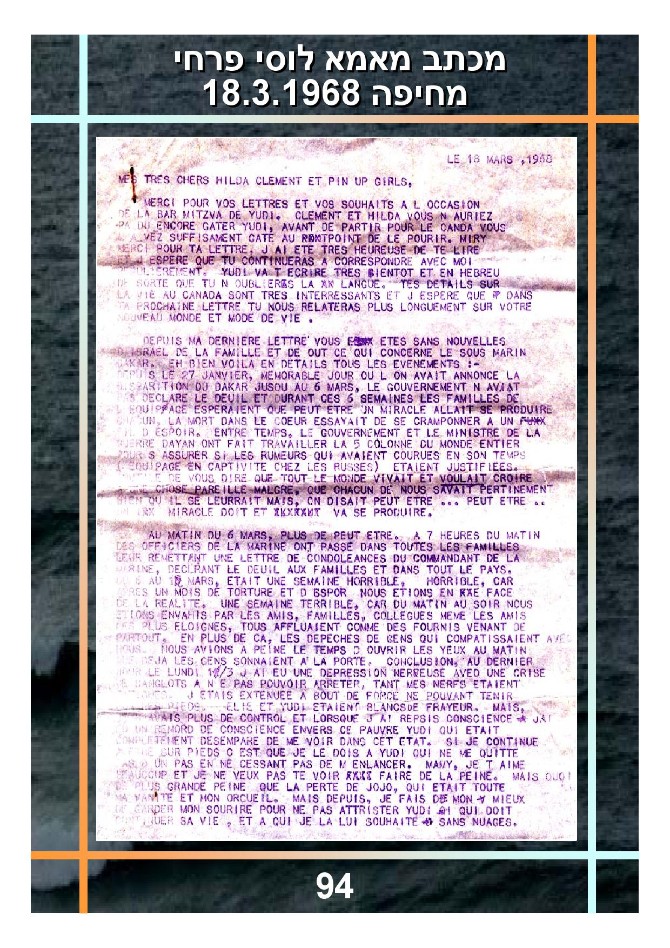 מכתב מאמא לוסי פרחי
מחיפה 18.3.1968
LE 18 MARS ,1968
MES TRES CHERS HILDA CLEMENT ET PIN UP GIRLS,
MERCI POUR VOS LETTRES ET VOS SOUHAITS A L OCCASION
DE LA BAR MITZVA DE YUDI. CLEMENT ET HILDA VOUS N AURIEZ
PA DU ENCORE GATER YUDI, AVANT DE PARTIR POUR LE CANDA VOUS
VEZ SUFFISAMENT GATE AU POINT DE LE POURIR. MIRY
MERCI POUR TA LETTRE. J AI ETE TRES HEUREUSE DE TE LIRE
J ESPERE QUE TU CONTINUERAS A CORRESPONDRE AVEC MOI
YUDI VA T ECRIRE TRES BIENTOT ET EN HEBREU
DE SORTE QUE TU N OUBLIERAS LA XX LANGUE. TES DETAILS SUR
LA VIE AU CANADA SONT TRES INTERRESSANTS ET J ESPERE QUE DANS
TA PROCHAINE LETTRE TU NOUS RELATERAS PLUS LONGUEMENT SUR VOTRE
NOUVEAU MONDE ET MODE DE VIE .
DEPUIS MA DERNIERE LETTRE VOUS ETES SANS NOUVELLES
D ISRAEL DE LA FAMILLE ET DE OUT CE QUI CONCERNE LE SOUS MARIN
DAKAR. EH BIEN VOILA EN DETAILS TOUS LES EVENEMENTS :-
LE 27 JANVIER, MEMORABLE JOUR OU L ON AVAIT ANNONCE LA
DU DAKAR JUSQU AU 6 MARS, LE GOUVERNEMENT N AVIAT
DECLARE LE DEUIL ET DURANT CES 6 SEMAINES LES FAMILLES DE
L EQUIPPAGE ESPERAIENT QUE PEUT ETRE UN MIRACLE ALLAIT SE PRODUIRE
LA MORT DANS LE COEUR ESSAYAIT DE SE CRAMPONNER A UN
D ESPOIR. ENTRE TEMPS, LE GOUVERNEMENT ET LE MINISTRE DE LA
GUERRE DAYAN ONT FAIT TRAVAILLER LA 5 COLONNE DU MONDE ENTIER
POUR S ASSURER SI LES RUMEURS QUI AVAIENT COURUES EN SON TEMPS
EQUIPAGE EN CAPTIVITE CHEZ LES RUSSES) ETAIENT JUSTIFIEES.
DE VOUS DIRE QUE TOUT LE MONDE VIVAIT ET VOULAIT CROIRE
CHOSE PAREILLE MALGRE, QUE CHACUN DE NOUS SAVAIT PERTINEMENT
QU IL SE LEURRAIT MAIS, ON DISAIT PEUT ETRE ... PEUT ETRE ..
MIRACLE DOIT ET XXXXXXX VA SE PRODUIRE.
AU MATIN DU 6 MARS, PLUS DE PEUT ETRE. A 7 HEURES DU MATIN
DES OFFICIERS DE LA MARINE ONT PASSE DANS TOUTES LES FAMILLES
LEUR REMETTANT UNE LETTRE DE CONDOLEANCES DU COMMANDANT DE LA
MARINE, DECLRANT LE DEUIL AUX FAMILLES ET DANS TOUT LE PAYS.
6 AU MARS, ETAIT UNE SEMAINE HORRIBLE, HORRIBLE, CAR
UN MOIS DE TORTURE ET D ESPOR NOUS ETIONS EN FACE
DE LA REALITE. UNE SEMAINE TERRIBLE, CAR DU MATIN AU SOIR NOUS
ETIONS ENVAHIS PAR LES AMIS, FAMILLES, COLLEGUES MEME LES AMIS
LES PLUS ELOIGNES, TOUS AFFLUAIENT COMME DES FOURNIS VENANT DE
PARTOUT. EN PLUS DE CA, LES DEPECHES DE GENS QUI COMPATISSAIENT AVEC
NOUS. NOUS AVIONS A PEINE LE TEMPS D OUVRIR LES YEUX AU MATIN
DEJA LES GENS SONNAIENT A LA PORTE. CONCLUSION, AU DERNIER
LE LUNDI J AI EU UNE DEPRESSION NERBEUSE AVEC UNE CRISE
SANGLOTS A N E PAS POUVOIR ARRETER, TANT MES NERFS ETAIENT
J ETAIS EXTENUEE A BOUT DE FORCE NE POUVANT TENIR
PIEDS. ELIE ET YUDI ETAIENT BLANCSDE FRAYEUR. MAIS,
PLUS DE CONTROL ET LORSQUE J AI REPSIS CONSCIENCE J AI
UN REMORD DE CONSCIENCE ENVERS CE PAUVRE YUDI QUI ETAIT
COMPLETEMENT DESEMPARE DE ME VOIR DANS CET ETAT. SI JE CONTINUE
SUR PIEDS C EST QUE JE LE DOIS A YUDI QUI NE ME QUITTE
UN PAS EN NE CESSANT PAS DE M ENLANCER. MAMY, JE T AIME
BEAUCOUP ET JE NE VEUX PAS TE VOIR XXXX FAIRE DE LA PEINE. MAIS QUOI
DE PLUS GRANDE PEINE QUE LA PERTE DE JOJO, QUI ETAIT TOUTE
MA VANITE ET MON ORCUEIL. MAIS DEPUIS, JE FAIS DE MON MIEUX
MON SOURIRE POUR NE PAS ATTRISTER YUDI QUI DOIT
SA VIE , ET A QUI JE LA LUI SOUHAITE SANS NUAGES.
94